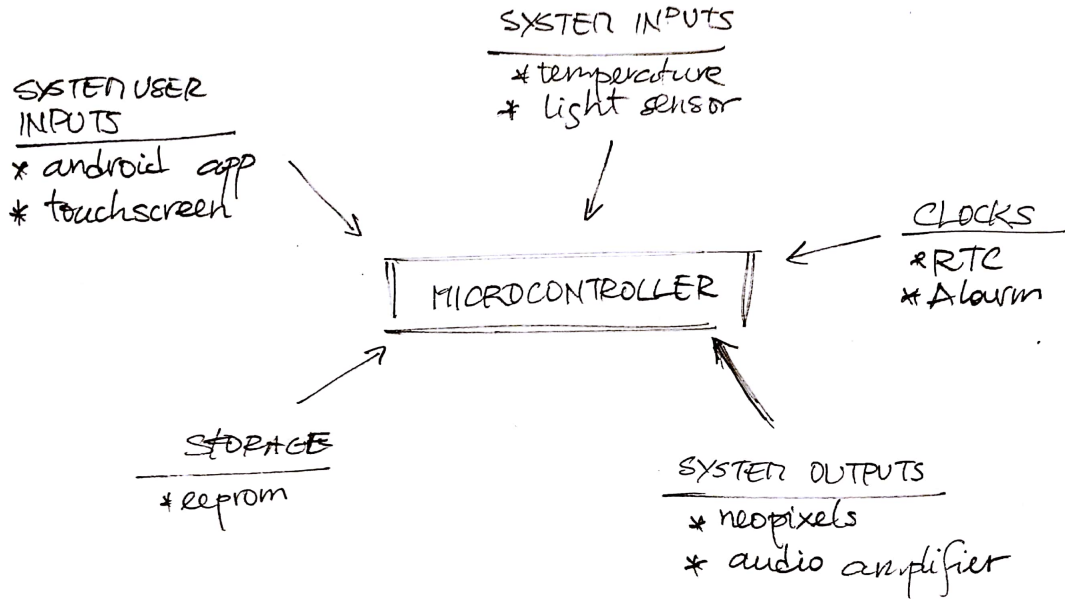 SYSTEM INPUTS
* temperature
* light sensor
SYSTEM USER
INPUTS
* android app
* touchscreen
CLOCKS
* RTC
* Alarm
MICROCONTROLLER
STORAGE
* eeprom
SYSTEM OUTPUTS
* neopixels
* audio amplifier